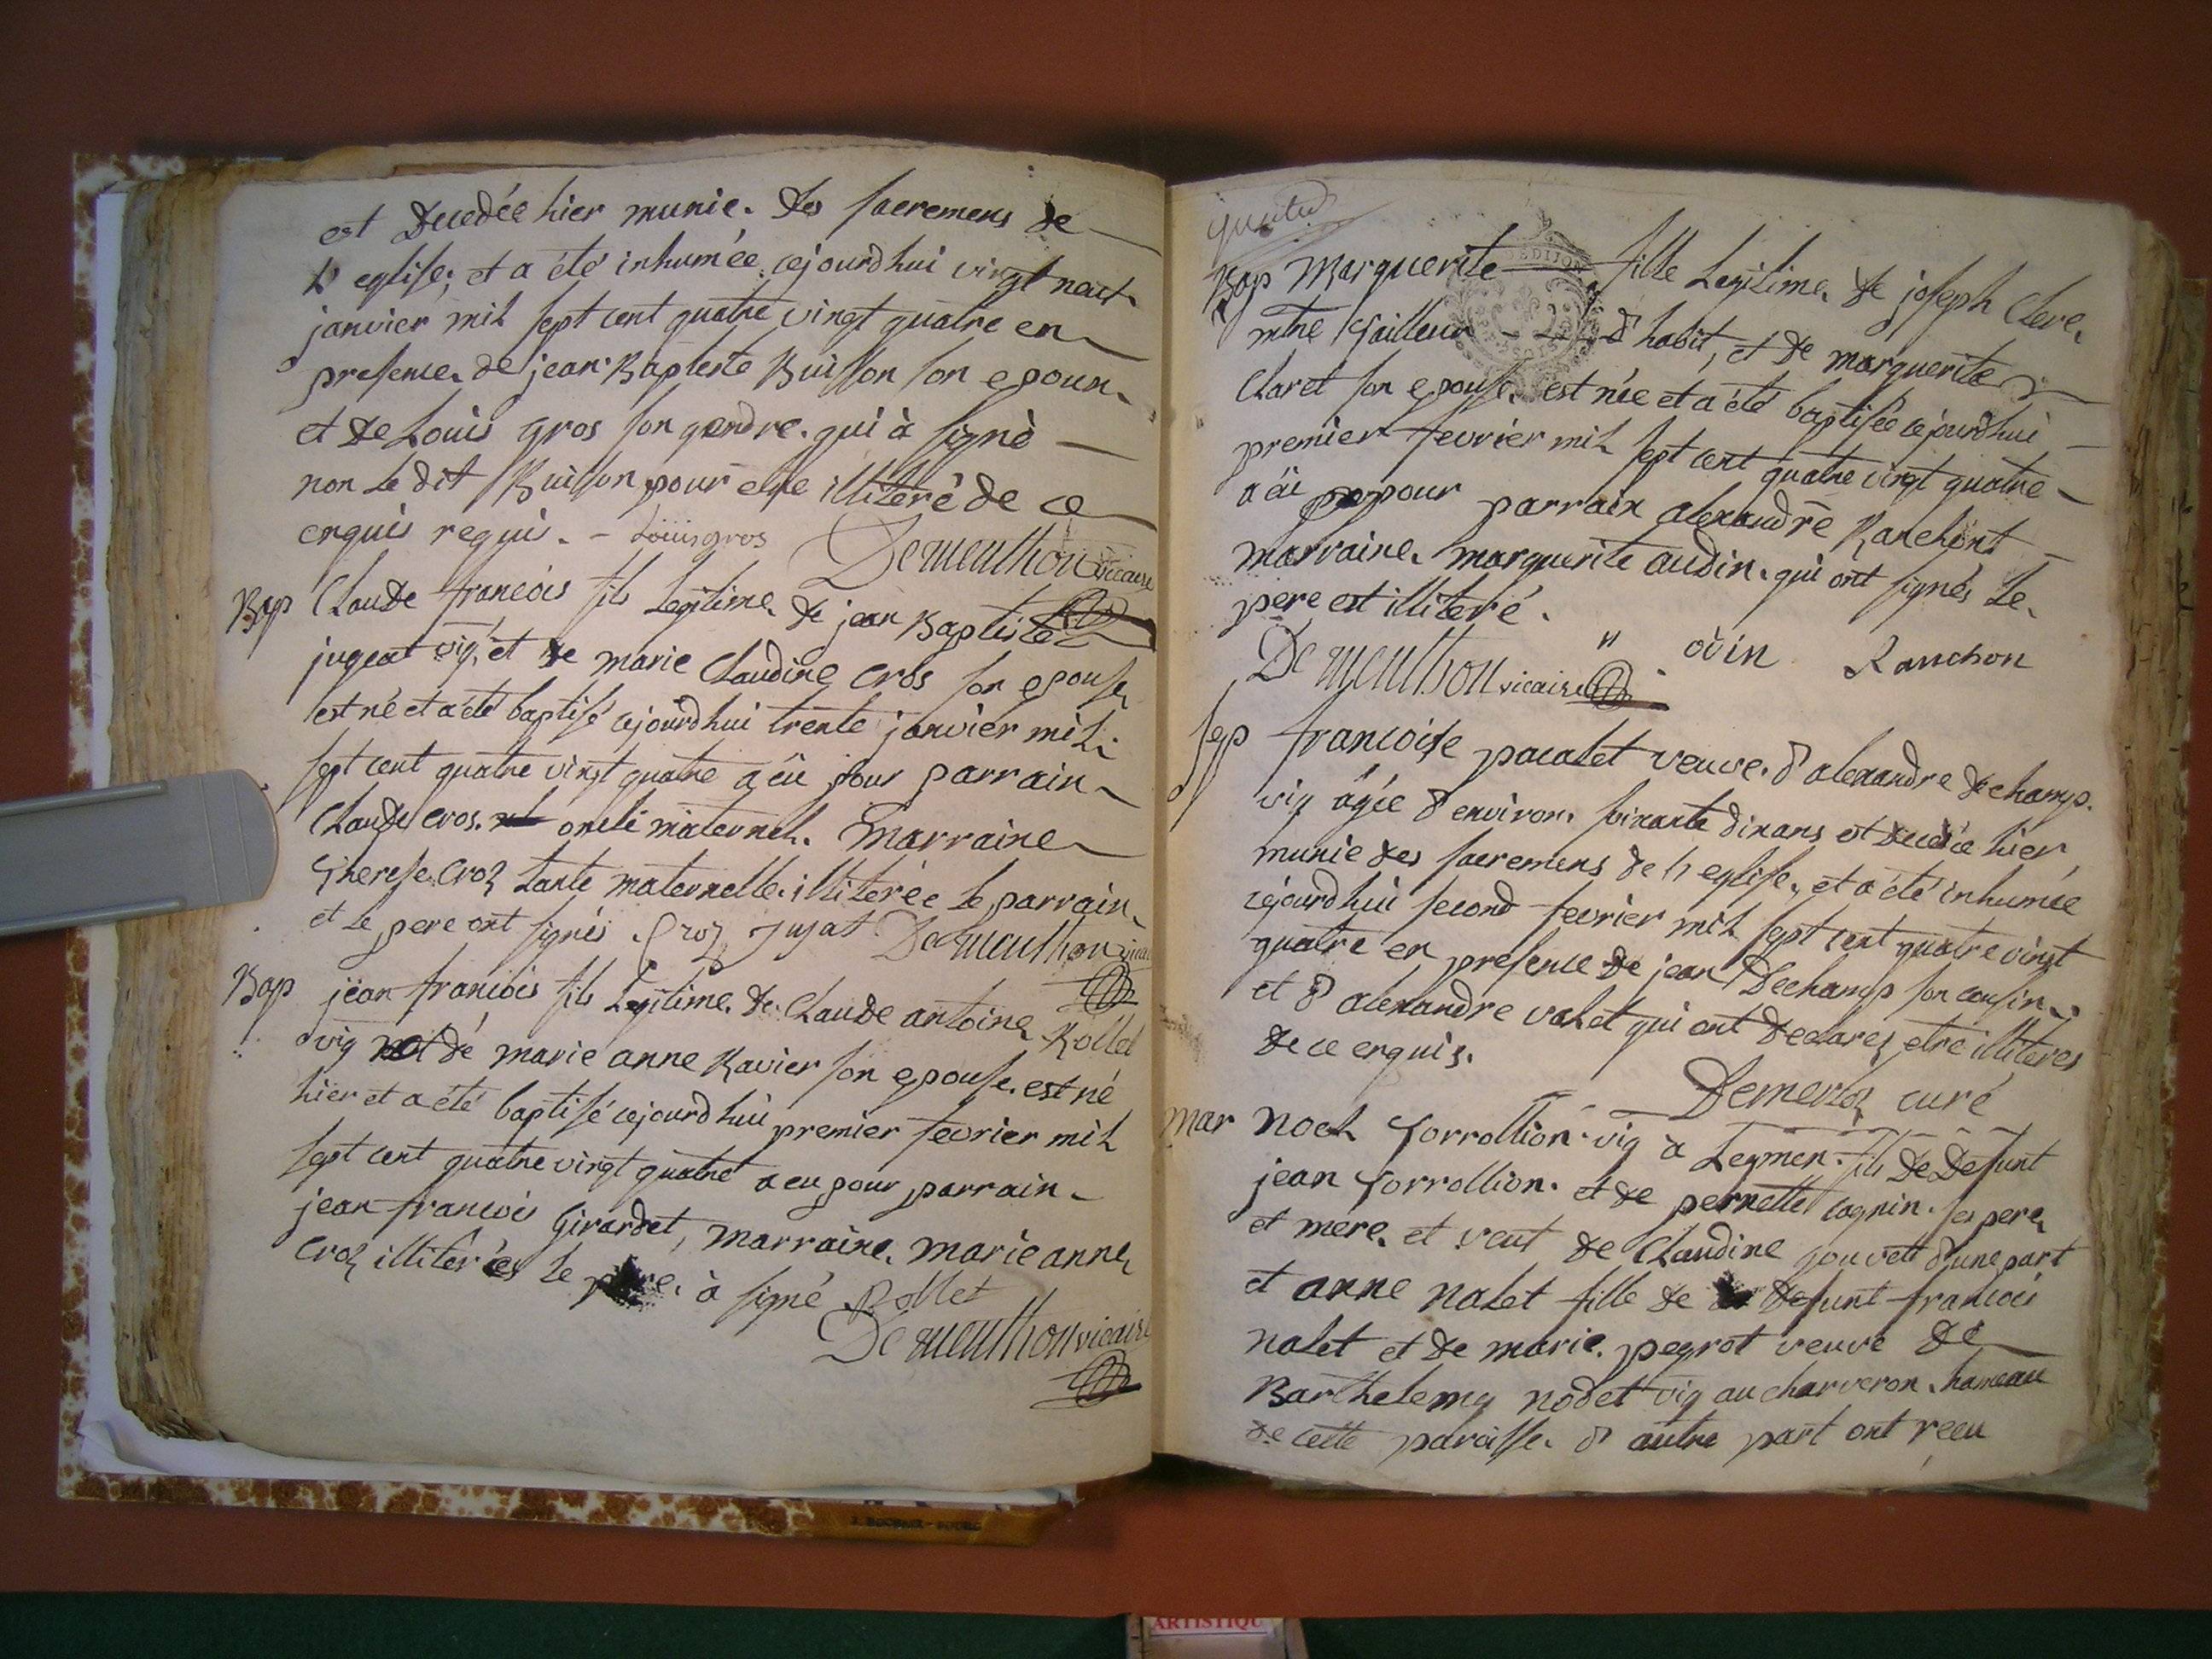 est decedée hier munie des sacremens de
l'eglise, et a été inhumée cejourdhui vingt neuf
janvier mil sept cent quatre vingt quatre en
presence de jean Baptiste Buisson son epoux
et de Louis gros son gendre qui à signé
non le dit Buisson pour etre illiteré de ce
enquis requis. - Loüis gros Demeuthon vicaire
Bap Claude francois fils legitime de jean Baptiste
jugeat vig. et de marie Claudine cros son epouse
est né et a été baptisé cejourdhui trente janvier mil
sept cent quatre vingt quatre a eü pour parrain
Claude cros oncle maternel. Marraine
Therese Croz tante maternelle illiterée le parrain
et le pere ont signés. Croz Jujat Demeuthon vicai
Bap jean francois fils legitime de Claude antoine Rollet
vig et de marie anne Ravier son epouse est né
hier et a été baptisé cejourdhui premier fevrier mil
sept cent quatre vingt quatre a eu pour parrain
jean francois Girardet, marraine marie anne
Croz illiterées le pere à signé Rollet
Demeuthon vicaire
Bap Marguerite fille legitime de joseph Clere
mtre Tailleur d'habit, et de marguerite
Claret son epouse est née et a été baptisée cejourdhui
premier fevrier mil sept cent quatre vingt quatre
a eü pour parrain alexandre Ranchont
marraine marguerite audin qui ont signés le
pere est illiteré.
Demeuthon vicaire odin Ranchon
Sep francoise pacalet veuve d'alexandre dechamp
vig âgée d'environ soixante dix ans est decedée hier
munie des sacremens de l'eglise, et a été inhumée
cejourdhui second fevrier mil sept cent quatre vingt
quatre en presence de jean Dechamp son cousin
et d'alexandre valet qui ont declarez etre illiteres
de ce enquis.
Demerloz curé
Mar Noel Torrollion vig à Leymen fils de defunt
jean Torrollion et de pernette cognin ses pere
et mere et veuf de Claudine jouvett d'une part
et anne Nalet fille de defunt francois
Nalet et de marie peyrot veuve de
Barthelemy nodet vig au charveron hameau
de cette paroisse d'autre part ont recu